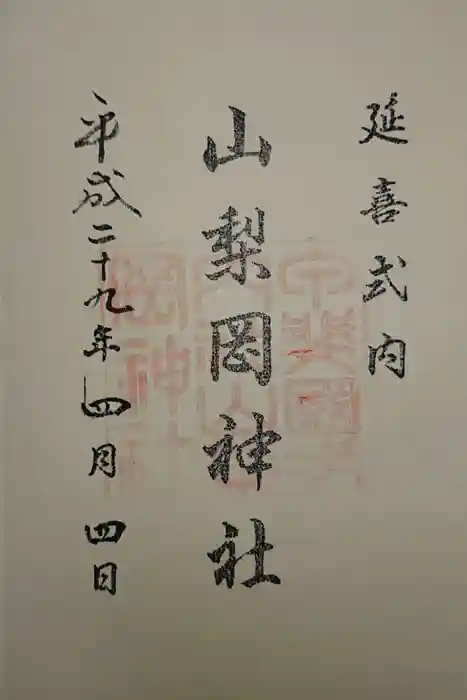 延喜式内
山梨岡神社
平成二十九年四月四日